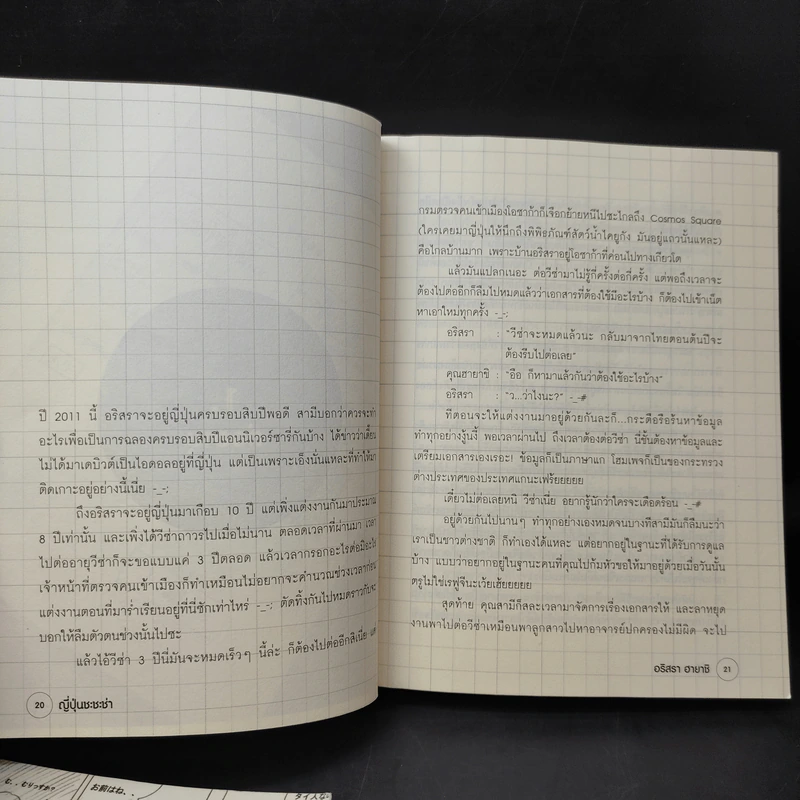 ปี 2011 นี้ อริสราจะอยู่ญี่ปุ่นครบรอบสิบปีพอดี สามีบอกว่าควรจะทำ
อะไรเพื่อเป็นการฉลองครบรอบสิบปีแอนนิเวอร์ซารี่กันบ้าง ได้ข่าวว่าเดี๊ยน
ไม่ได้มาเดบิวต์เป็นไอดอลอยู่ที่ญี่ปุ่น แต่เป็นเพราะเอ็งนั่นแหละที่ทำให้มา
ติดเกาะอยู่อย่างนี้เนี่ย -_-;
ถึงอริสราจะอยู่ญี่ปุ่นมาเกือบ 10 ปี แต่เพิ่งแต่งงานกันมาประมาณ
8 ปีเท่านั้น และเพิ่งได้วีซ่าถาวรไปเมื่อไม่นาน ตลอดเวลาที่ผ่านมา เวลา
ไปต่ออายุวีซ่าก็จะขอแบบแค่ 3 ปีตลอด แล้วเวลากรอกอะไรต่อมิอะไร
เจ้าหน้าที่ตรวจคนเข้าเมืองก็ทำเหมือนไม่อยากจะคำนวณช่วงเวลาก่อน
แต่งงานตอนที่มาร่ำเรียนอยู่ที่นี่ซักเท่าไหร่ -_-; ตัดทิ้งกันไปหมดราวกับจะ
บอกให้ลืมตัวตนช่วงนั้นไปซะ
แล้วไอ้วีซ่า 3 ปีนี่มันจะหมดเร็วๆ นี้ล่ะ ก็ต้องไปต่ออีกสิเนี่ย
20 ญี่ปุ่นชะชะช่า
กรมตรวจคนเข้าเมืองโอซาก้าก็เจือกย้ายหนีไปซะไกลถึง Cosmos Square
(ใครเคยมาญี่ปุ่นให้นึกถึงพิพิธภัณฑ์สัตว์น้ำไคยูกัง มันอยู่แถวนั้นแหละ)
คือไกลบ้านมาก เพราะบ้านอริสราอยู่โอซาก้าที่ค่อนไปทางเกียวโต
แล้วมันแปลกเนอะ ต่อวีซ่ามาไม่รู้กี่ครั้งต่อกี่ครั้ง แต่พอถึงเวลาจะ
ต้องไปต่ออีกก็ลืมไปหมดแล้วว่าเอกสารที่ต้องใช้มีอะไรบ้าง ก็ต้องไปเข้าเน็ต
หาเอาใหม่ทุกครั้ง -_-;
อริสรา : "วีซ่าจะหมดแล้วนะ กลับมาจากไทยตอนต้นปีจะ
ต้องรีบไปต่อเลย"
คุณฮายาชิ : "อือ ก็หามาแล้วกันว่าต้องใช้อะไรบ้าง"
อริสรา : "ว...ว่าไงนะ?" -_-#
ทีตอนจะให้แต่งงานมาอยู่ด้วยกันละก็...กระดือรือร้นหาข้อมูล
ทำทุกอย่างงู้นงี้ พอเวลาผ่านไป ถึงเวลาต้องต่อวีซ่า นี่ชั้นต้องหาข้อมูลและ
เตรียมเอกสารเองเรอะ! ข้อมูลก็เป็นภาษาแก โฮมเพจก็เป็นของกระทรวง
ต่างประเทศของประเทศแกนะเฟ้ยยยยย
เดี๋ยวไม่ต่อเลยหนิ วีซ่าเนี่ย อยากรู้นักว่าใครจะเดือดร้อน -_-#
อยู่ด้วยกันไปนานๆ ทำทุกอย่างเองหมดจนบางทีสามีมันก็ลืมนะว่า
เราเป็นชาวต่างชาติ ก็ทำเองได้แหละ แต่อยากอยู่ในฐานะที่ได้รับการดูแล
บ้าง แบบว่าอยากอยู่ในฐานะคนที่คุณไปก้มหัวขอให้มาอยู่ด้วยเมื่อวันนั้น
ตรูไม่ใช่เรฟูจีนะเว้ยเฮ้ยยยยย
สุดท้าย คุณสามีก็สละเวลามาจัดการเรื่องเอกสารให้ และลาหยุด
งานพาไปต่อวีซ่าเหมือนพาลูกสาวไปหาอาจารย์ปกครองไม่มีผิด จะไป
อริสรา ฮายาชิ 21
む..むりっすか?
お前はね..
タイ人な